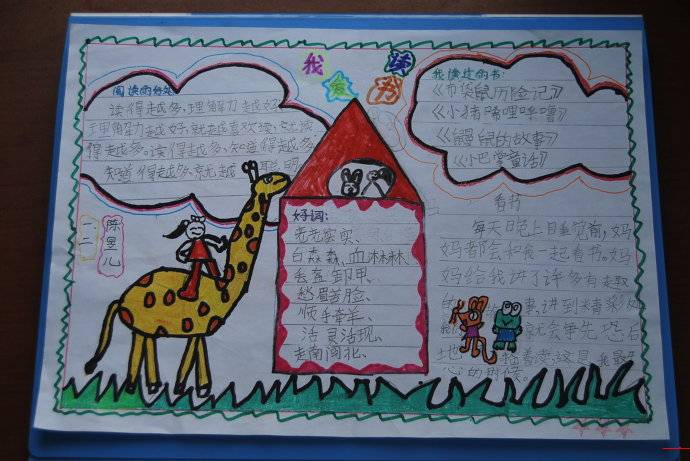 我爱读书
阅读的好处
读得越多,理解力越好,
理解力越好,就越喜欢读,就读
得越多。读得越多,知道得越多,
知道得越多,就越聪明
我读过的书:
《布袋鼠历险记》
《小猪唏哩呼噜》
《鼹鼠的故事》
《小巴掌童话》
一二
陈昱儿
好词:
老老实实、
白森森、血淋淋、
丢盔卸甲、
愁眉苦脸、
顺手牵羊、
活灵活现、
走南闯北、
看书
每天晚上目睡觉前,妈
妈都会和我一起看书。妈
妈给我讲了许多有趣
的事,讲到精彩处
我们就会争先恐后
地抢着读,这是我最开
心的时候。